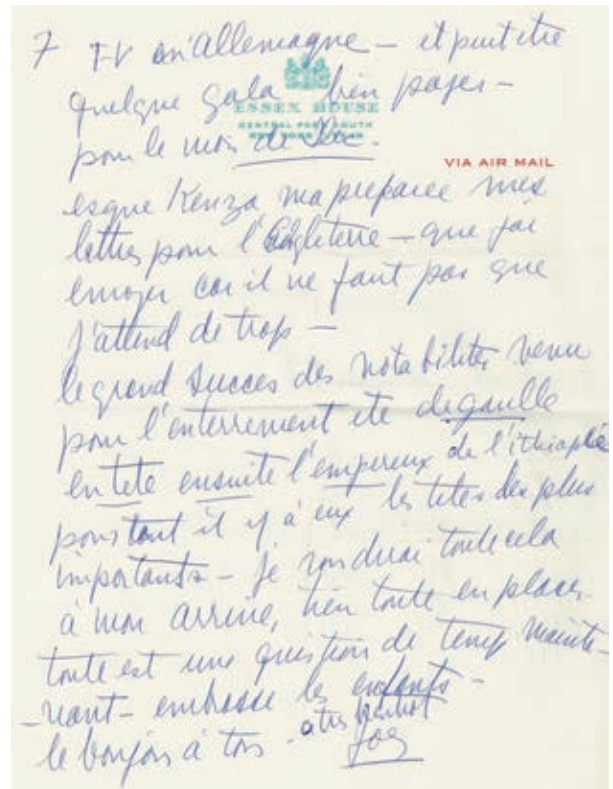 7 TV en'Allemagne — et peut etre
quelque gala bien payer —
ESSEX HOUSE
CENTRAL PARK SOUTH
pour le mois de Dec.
VIA AIR MAIL
esque Kenza ma preparee mes
lettres pour l'Engleterre — que jai
envoyer car il ne faut pas que
j'attend de trop —
le grand succes des notabilites venu
pour l'enterrement ete degaulle
en tete ensuite l'empereux de l'ithiopie
pourtant il y à eux les tetes des plus
importants — je rendrai toute cela
à mon arrive, bien toute en place.
toute est une question de temp mainte-
-nant — embrasse les enfants —
le bonjour à tous — a tres bientot
Joe